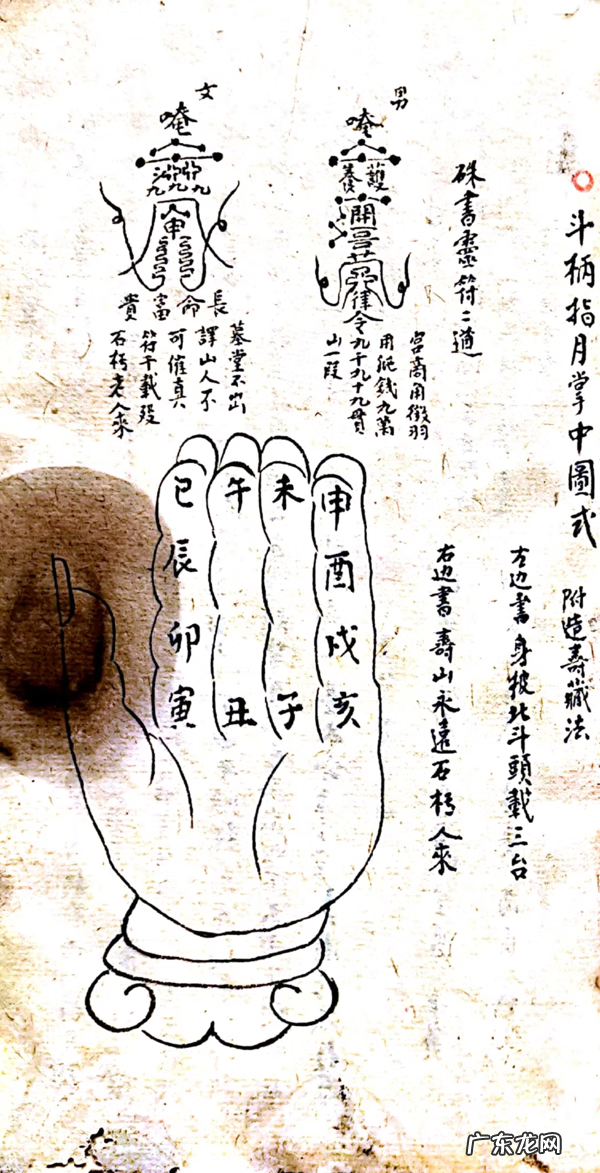 斗柄指月掌中圖式
附造壽藏法
左边書身披北斗頭戴三台
右边書壽山永遠石朽人來
硃書靈符二道
男
唵
護
養
開
律令九千九十九貫
宫商角徵羽
用
錢九萬
山一段
女
唵
長命富貴
墓堂不出
譯山人不
可催真
符千載後
石朽老人來
申 未 午 巳
酉 辰
戌 卯
亥 子 丑 寅
广东龙网